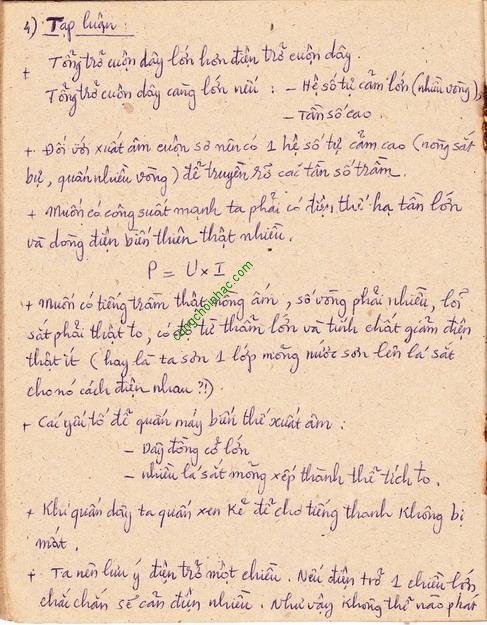 4) Tap luận :
+ Tổng trở cuộn dây lớn hơn điện trở cuộn dây.
Tổng trở cuộn dây càng lớn nếu : - Hệ số tự cảm lớn (nhiều vòng),
- Tần số cao.
+ Đối với xuất âm cuộn sơ nên có 1 hệ số tự cảm cao (nòng sắt
bự, quấn nhiều vòng) để truyền rõ các tần số trầm.
+ Muốn có công suất mạnh ta phải có điện thế hạ tần lớn
và dòng điện biến thiên thật nhiều.
P = U x I
+ Muốn có tiếng trầm thật nồng ấm, số vòng phải nhiều, lõi
sắt phải thật to, có độ từ thẩm lớn và tính chất quắm điện
thật ít ( hay là ta sơn 1 lớp mỏng nước sơn lên lá sắt
cho nó cách điện nhau ?!)
+ Các yếu tố để quấn máy biến thế xuất âm :
- Dây đồng cỡ lớn
- nhiều lá sắt mỏng xếp thành thể tích to.
+ Khi quấn dây ta quấn xen kẽ để cho tiếng thanh không bị
mất.
+ Ta nên lưu ý điện trở một chiều. Nếu điện trở 1 chiều lớn
chắc chắn sẽ cản điện nhiều. Như vậy không thể nào phát
cungchoinhac.com